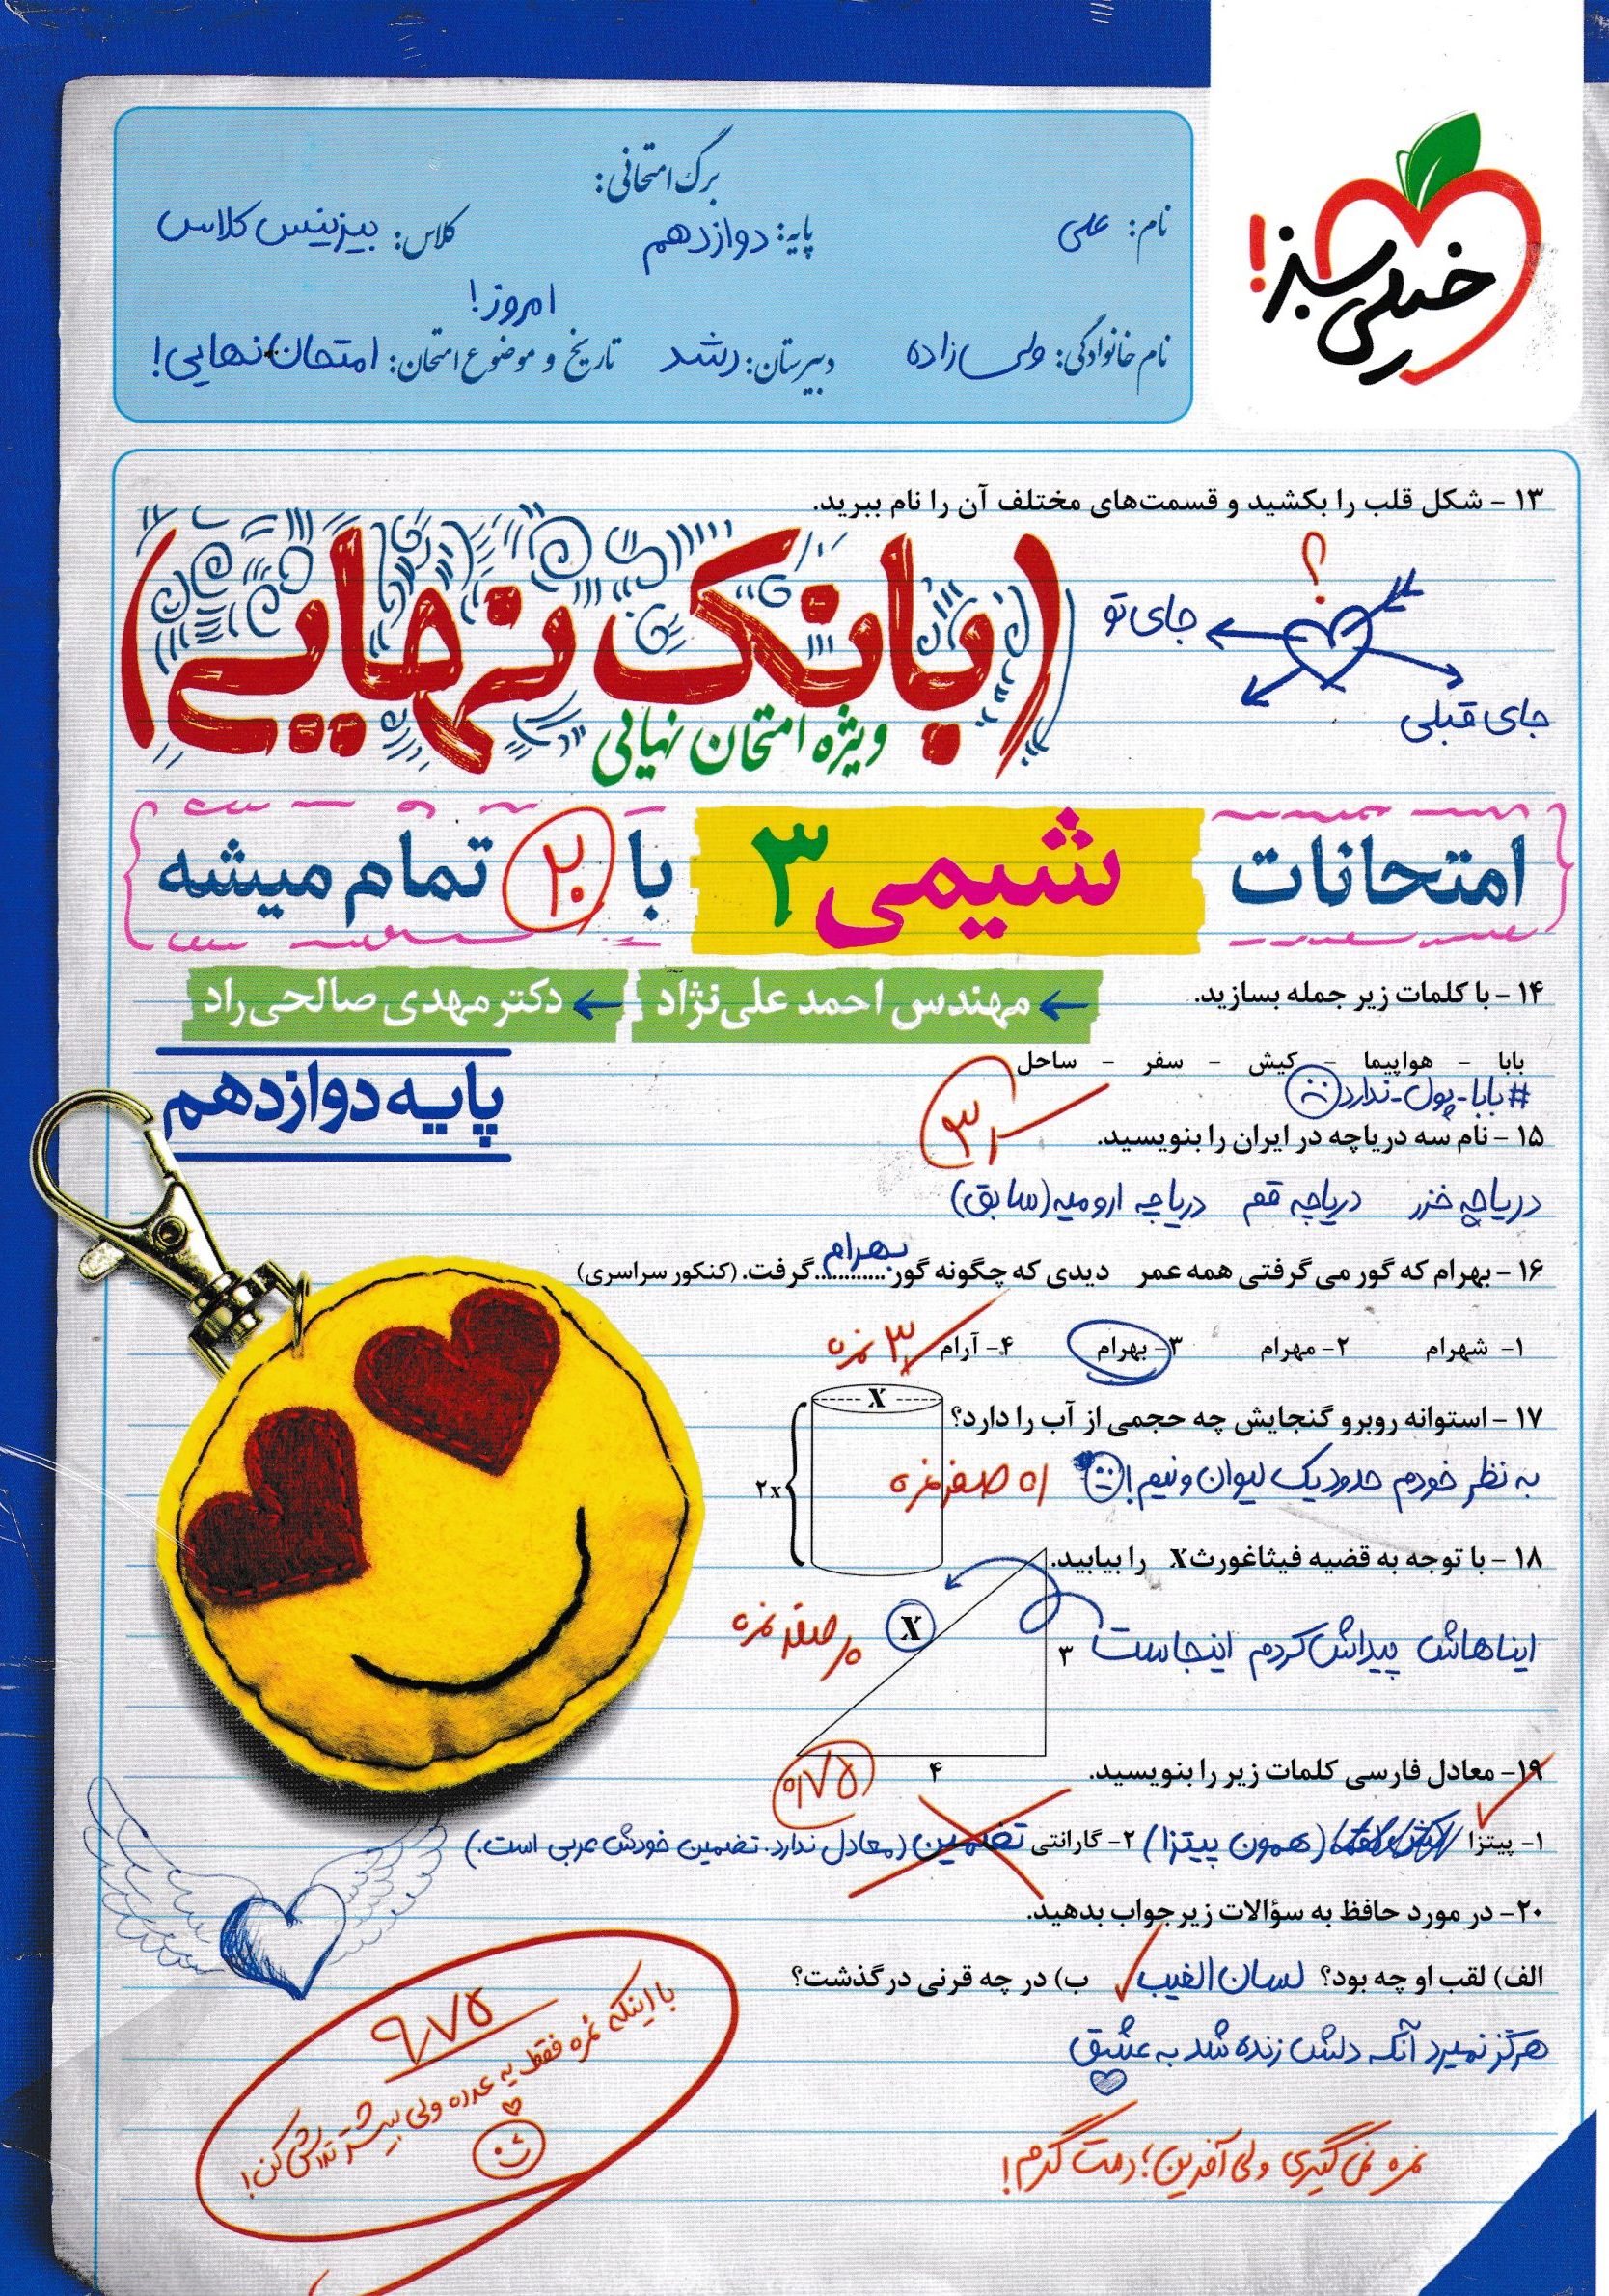 خیلی سبز!
برگ امتحانی:
نام: علی
پایه: دوازدهم
کلاس: بیزینس کلاس
نام خانوادگی: ولی‌زاده
دبیرستان: رشد
تاریخ و موضوع امتحان: امتحان نهایی!
امروز!
۱۳ - شکل قلب را بکشید و قسمت‌های مختلف آن را نام ببرید.
؟
جای تو
جای قبلی
(بانک نهایی)
ویژه امتحان نهایی
امتحانات شیمی ۳ با ۲۰ تمام میشه
مهندس احمد علی‌نژاد
دکتر مهدی صالحی‌راد
پایه دوازدهم
۱۴ - با کلمات زیر جمله بسازید.
بابا - هواپیما - کیش - سفر - ساحل
#بابا-پول-ندارد
۱۵ - نام سه دریاچه در ایران را بنویسید.
دریاچه خزر دریاچه قم دریاچه ارومیه (سابق)
۱۶ - بهرام که گور می‌گرفتی همه عمر دیدی که چگونه گور ............ گرفت. (کنکور سراسری)
بهرام
۱- شهرام ۲- مهرام ۳- بهرام ۴- آرام
۳ نمره
۱۷ - استوانه روبرو گنجایش چه حجمی از آب را دارد؟
x
۲x
به نظر خودم حدود یک لیوان و نیم!
صفر نمره
۱۸ - با توجه به قضیه فیثاغورث x را بیابید.
ایناهاش پیداش کردم اینجاست
x
۳
۴
صفر نمره
۱۹- معادل فارسی کلمات زیر را بنویسید.
۰/۷۵
۱- پیتزا (همون پیتزا) ۲- گارانتی تضمین (معادل ندارد. تضمین خودش عربی است.)
۲۰- در مورد حافظ به سؤالات زیر جواب بدهید.
الف) لقب او چه بود؟ لسان الغیب ب) در چه قرنی درگذشت؟
هرگز نمیرد آنکه دلش زنده شد به عشق
نمره نمی‌گیری ولی آفرین؛ دمت گرم!
۹/۷۵
با اینکه نمره فقط یه عدده ولی بیشتر تلاش کن!